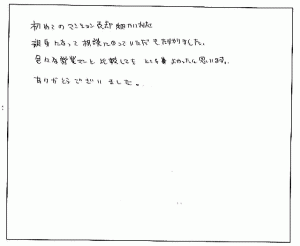 初めてのマンション売却 細かい所まで
親身になって相談にのっていただき助かりました。
色々な営業マンと比較しても とても良かったと思います。
ありがとうございました。